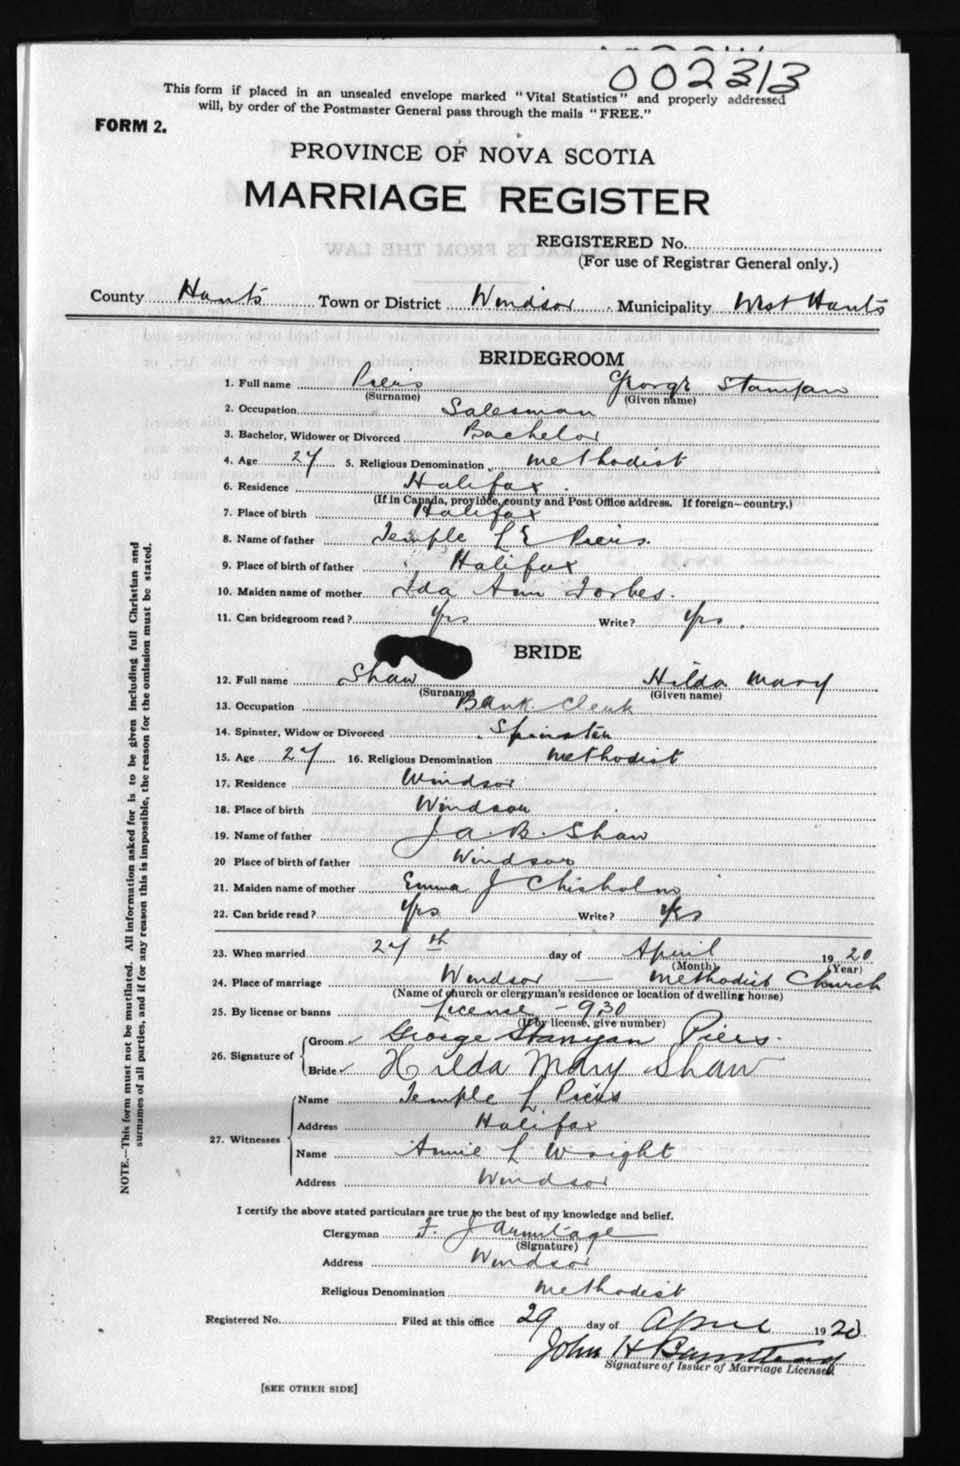 002313
This form if placed in an unsealed envelope marked "Vital Statistics" and properly addressed
will, by order of the Postmaster General pass through the mails "FREE."
FORM 2.
PROVINCE OF NOVA SCOTIA
MARRIAGE REGISTER
REGISTERED No.
(For use of Registrar General only.)
County Hants Town or District Windsor Municipality West Hants
BRIDEGROOM
1. Full name Piers George Stanyan
(Surname) (Given name)
2. Occupation Salesman
3. Bachelor, Widower or Divorced Bachelor
4. Age 27 5. Religious Denomination Methodist
6. Residence Halifax
(If in Canada, province, county and Post Office address. If foreign—country.)
7. Place of birth Halifax
8. Name of father Temple L E Piers.
9. Place of birth of father Halifax
10. Maiden name of mother Ida Ann Forbes.
11. Can bridegroom read? Yes Write? Yes.
BRIDE
12. Full name Shaw Hilda Mary
(Surname) (Given name)
13. Occupation Bank Clerk
14. Spinster, Widow or Divorced Spinster
15. Age 27 16. Religious Denomination Methodist
17. Residence Windsor
18. Place of birth Windsor
19. Name of father J A. B. Shaw
20 Place of birth of father Windsor
21. Maiden name of mother Emma J Chisholm
22. Can bride read? Yes Write? Yes
23. When married 27th day of April 1920
(Month) (Year)
24. Place of marriage Windsor — Methodist Church
(Name of church or clergyman's residence or location of dwelling house)
25. By license or banns License - 930
(If by license, give number)
26. Signature of Groom George Stanyan Piers.
Bride Hilda Mary Shaw
27. Witnesses Name Temple L. Piers
Address Halifax
Name Annie L Wright
Address Windsor
I certify the above stated particulars are true to the best of my knowledge and belief.
Clergyman F. J Armitage
(Signature)
Address Windsor
Religious Denomination Methodist
Registered No. Filed at this office 29 day of April 1920
John H
Signature of Issuer of Marriage Licenses.
[SEE OTHER SIDE]
NOTE.—This form must not be mutilated. All information asked for is to be given including full Christian and
surnames of all parties, and if for any reason this is impossible, the reason for the omission must be stated.